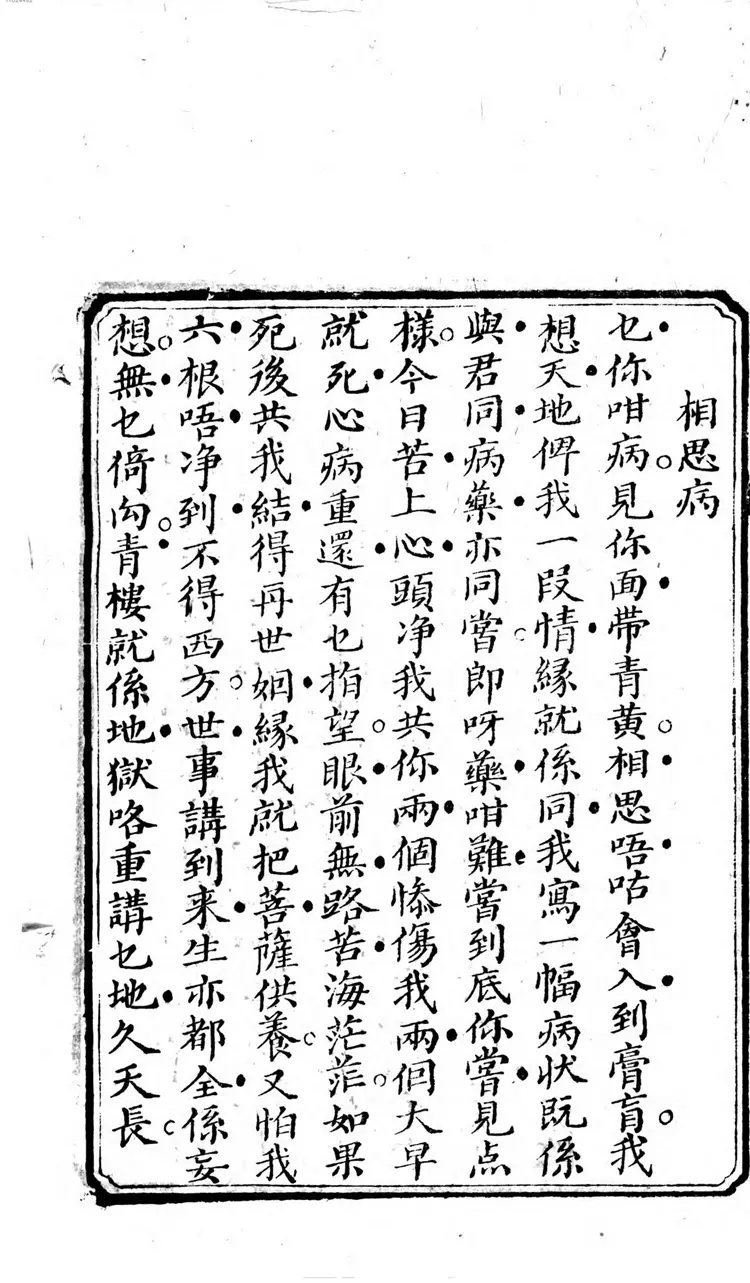 相思病
乜你咁病見你面帶青黃相思唔咕會入到膏肓我
想天地俾我一段情緣就係同我寫一幅病状既係
與君同病藥亦同嘗即呀藥咁難嘗到底你嘗見点
樣今日苦上心頭净我共你兩個慘傷我兩個大早
就死心病重還有乜指望眼前無路苦海茫茫如果
死後共我結得再世姻緣我就把菩薩供養又怕我
六根唔净到不得西方世事講到来生亦都全係妄
想無乜倚向青樓就係地獄咯重講乜地久天長